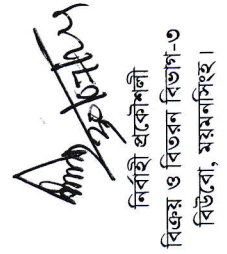 নির্বাহী প্রকৌশলী
বিক্রয় ও বিতরন বিভাগ-৩
বিউবো, ময়মনসিংহ।